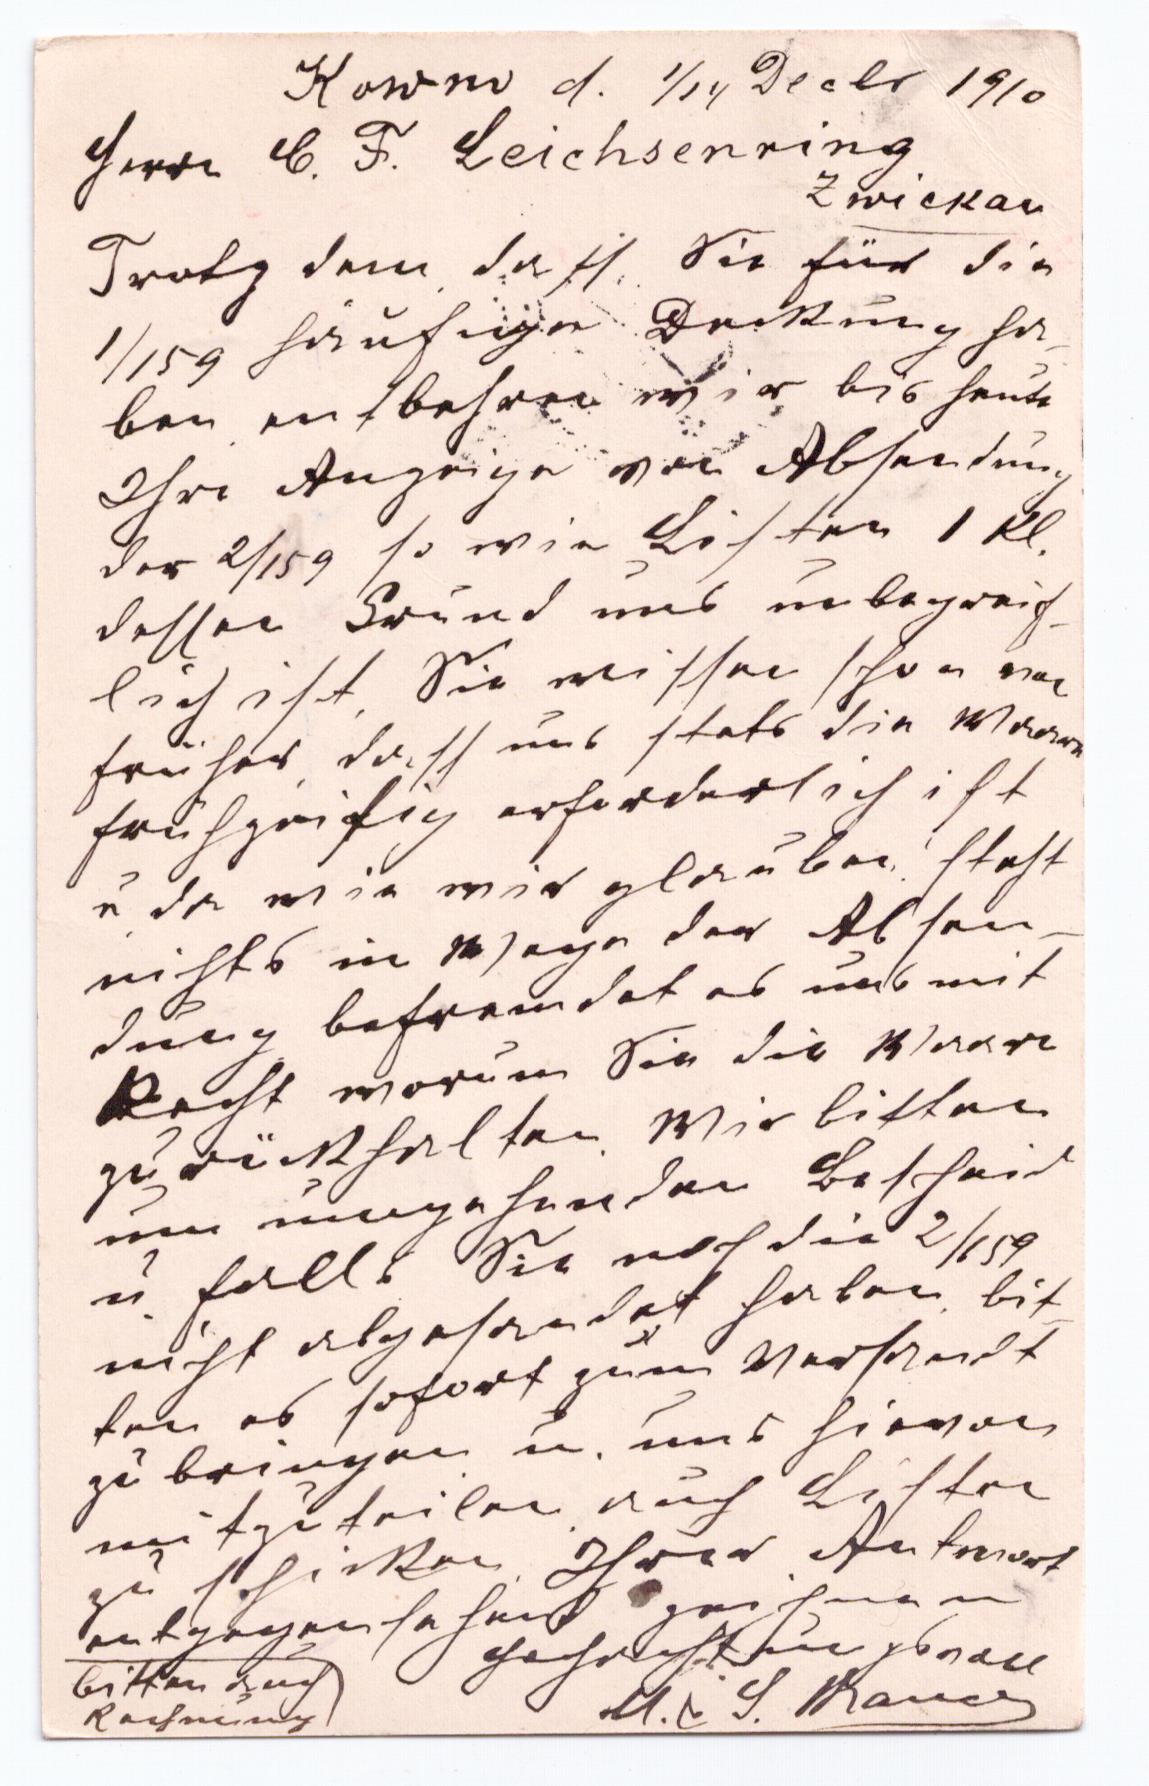 Kowno d. 1/14 Decbr 1910
Herrn C. F. Leichsenring
Zwickau
Trotz dem dass Sie für die
1/159 häufige Deckung ha-
ben entbehren wir bis heute
Ihre Anzeige von Absendung
der 2/159 so wie Listen 1 Kl.
dessen Grund uns unbegreif-
lich ist. Sie wissen schon von
früher, dass uns stets die Waare
frühzeitig erforderlich ist
u. da wie wir glauben, steht
nichts in Wege der Absen-
dung befremdet es uns mit
Recht worum Sie die Waare
zurückhalten. Wir bitten
um umgehenden Bescheid
u. falls Sie noch die 2/159
nicht abgesandet haben, bit-
ten es sofort zum Versandt
zu bringen u. uns hievon
mitzuteilen, auch Listen
zu schicken. Ihrer Antwort
entgegensehend zeichnen
Hochachtungsvoll
M. & S.
bitten auch
Rechnung